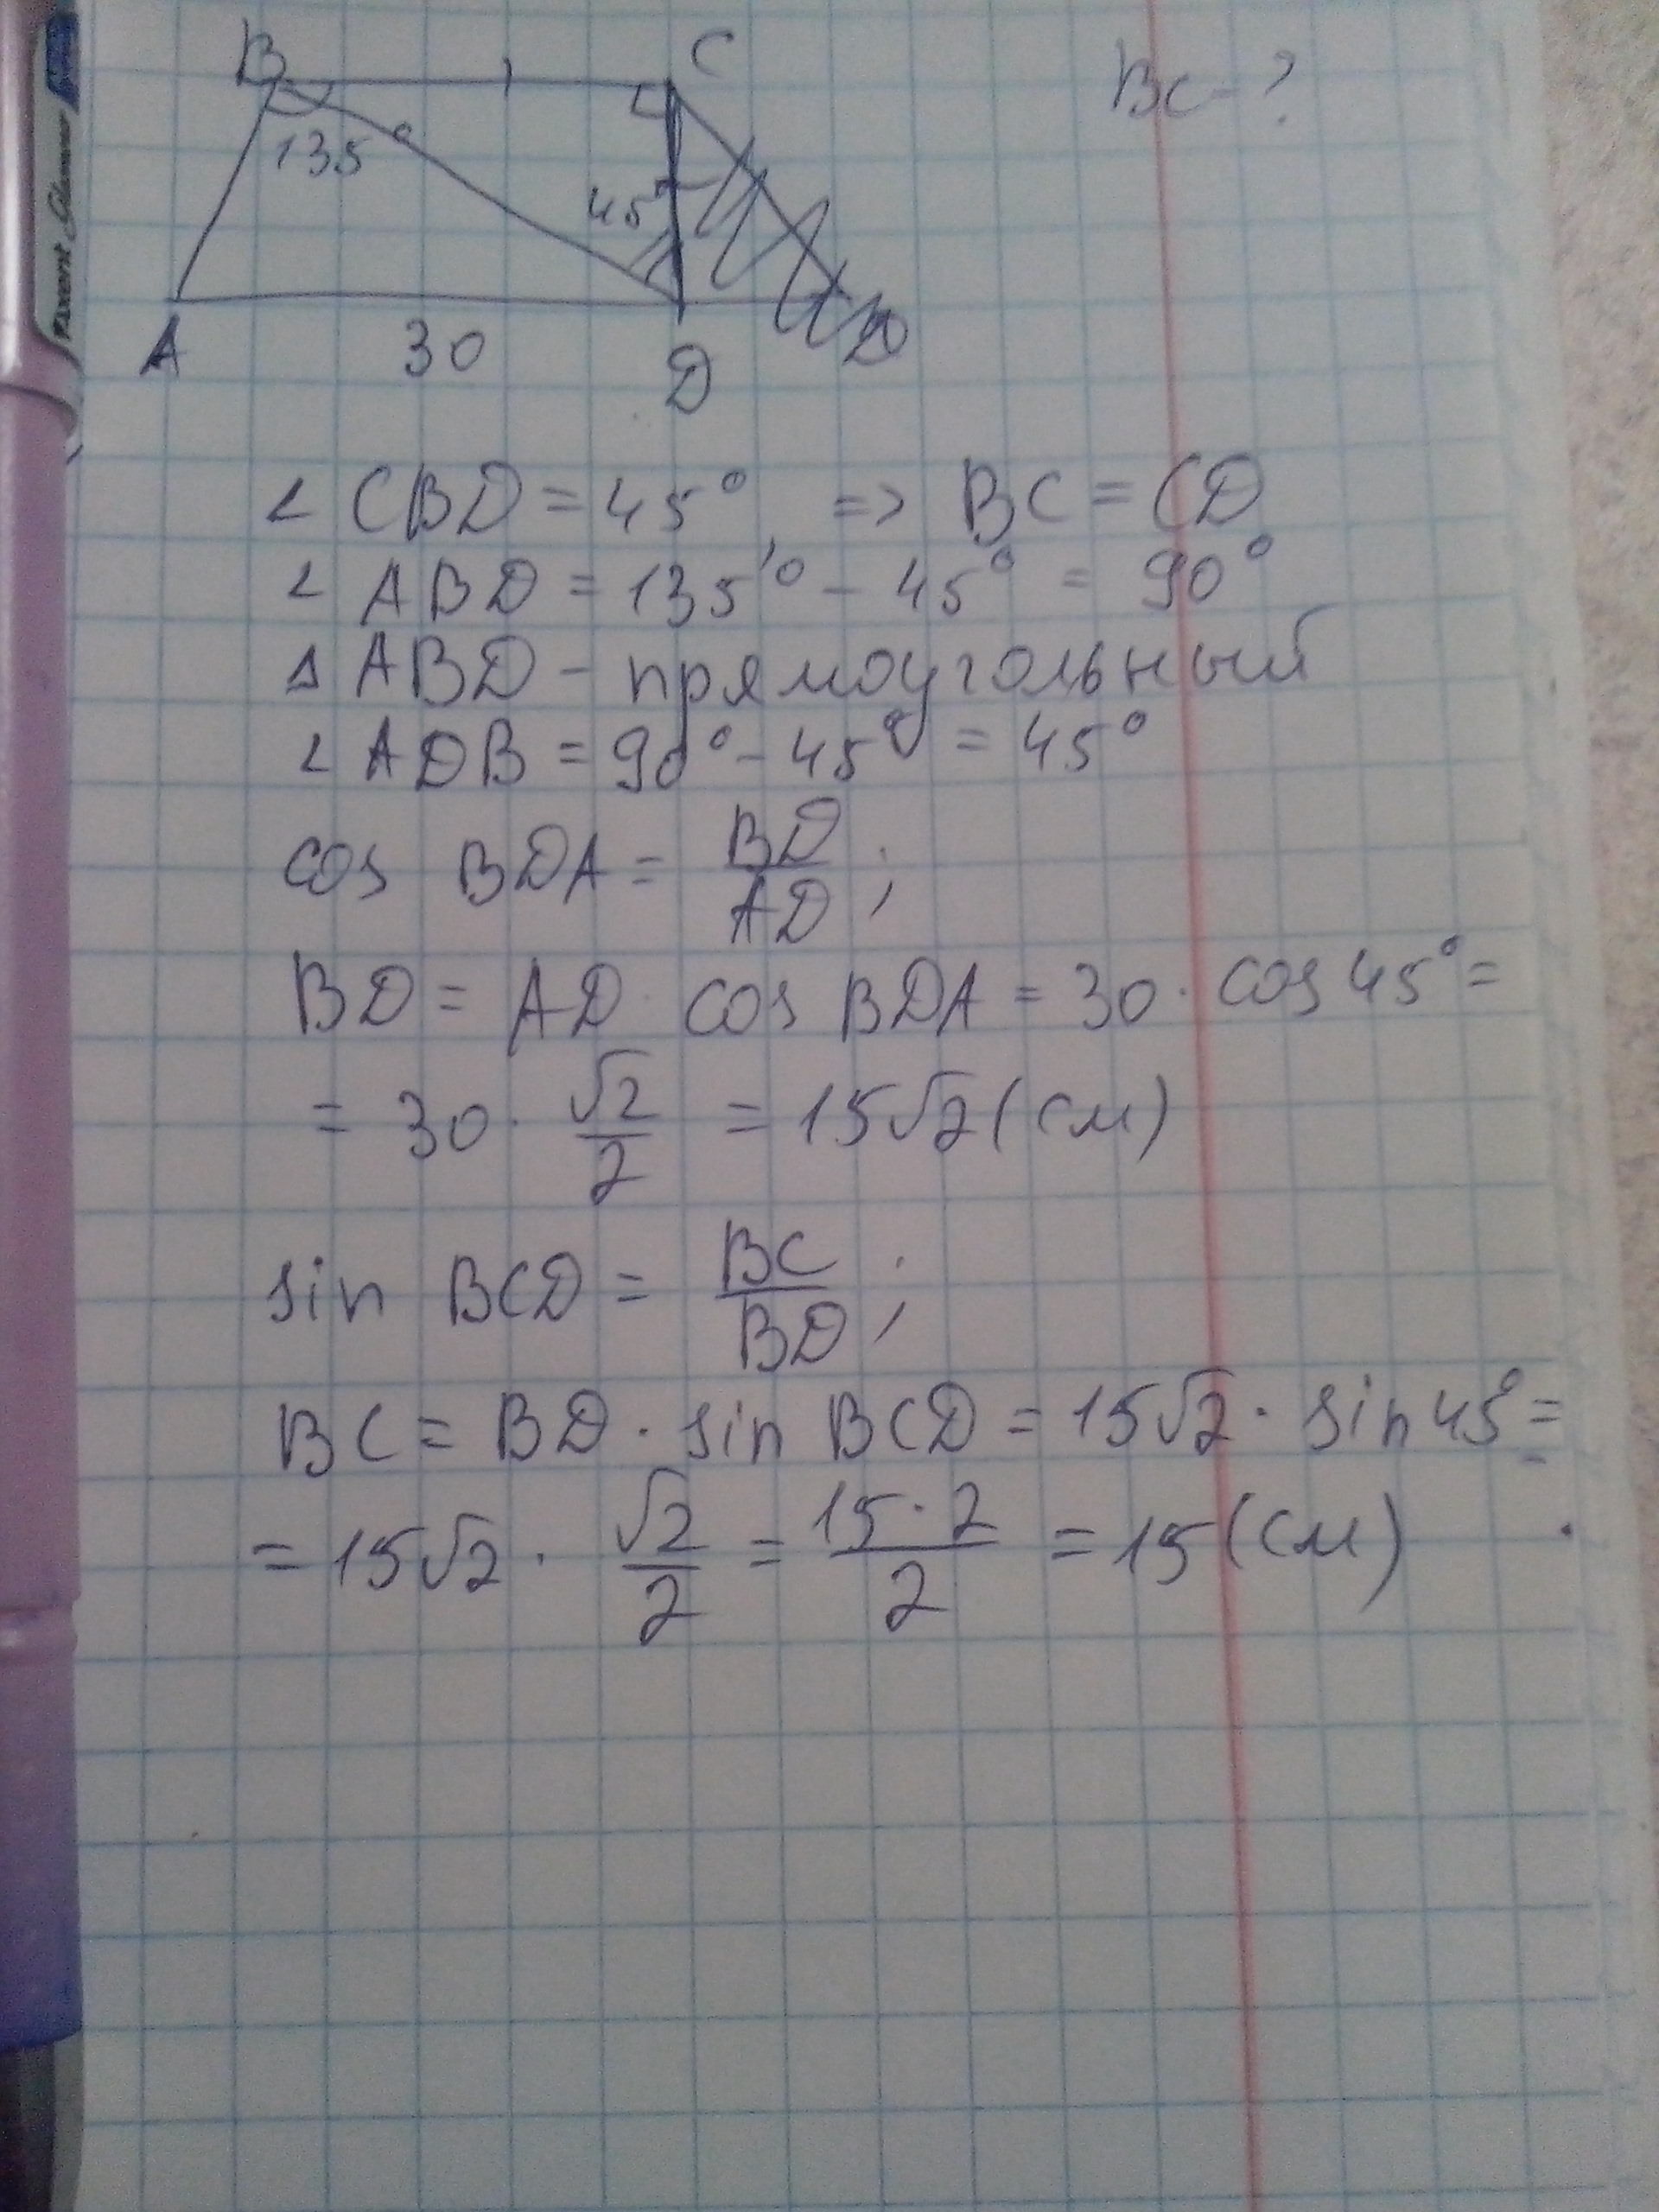 B C BC - ?
135°
45°
A 30 D
∠ CBD = 45°, => BC = CD
∠ ABD = 135° - 45° = 90°
Δ ABD - прямоугольный
∠ ADB = 90° - 45° = 45°
cos BDA = BD/AD ;
BD = AD · cos BDA = 30 · cos 45° =
= 30 · √2/2 = 15√2 (см)
sin BCD = BC/BD ;
BC = BD · sin BCD = 15√2 · sin 45° =
= 15√2 · √2/2 = 15·2/2 = 15 (см)